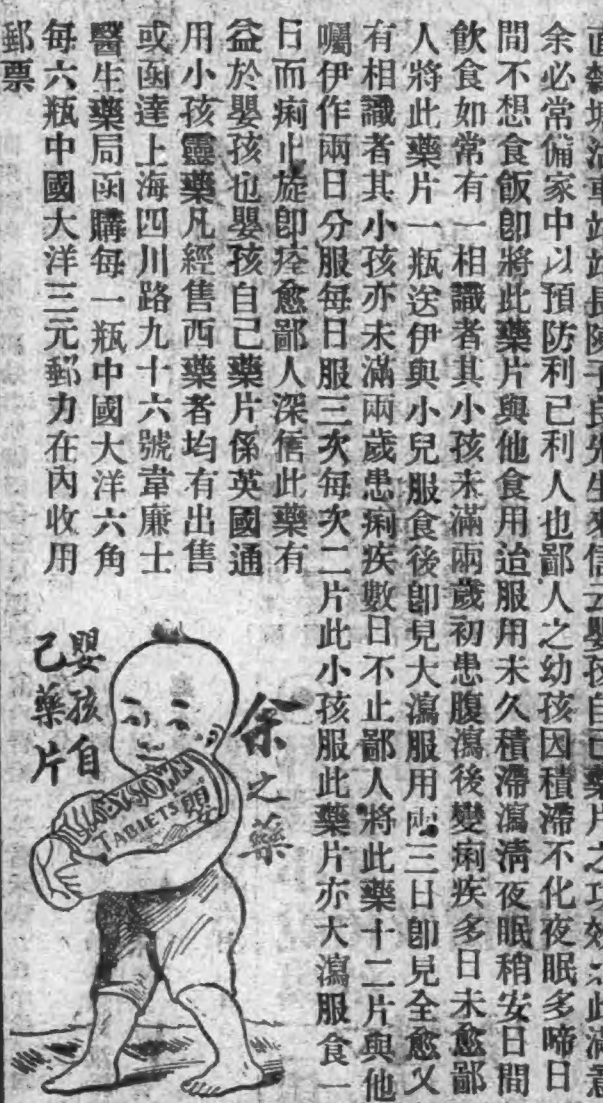 站站長陳子良先生來信云嬰孩自己藥片之功效如此滿意
余必常備家中以預防利己利人也鄙人之幼孩因積滯不化夜眠多啼日
間不想食飯卽將此藥片與他食用迨服用未久積滯瀉淸夜眠稍安日間
飮食如常有一相識者其小孩未滿兩歲初患腹瀉後變痢疾多日未愈鄙
人將此藥片一瓶送伊與小兒服食後卽見大瀉服用兩三日卽見全愈又
有相識者其小孩亦未滿兩歲患痢疾數日不止鄙人將此藥十二片與他
囑伊作兩日分服每日服三次每次二片此小孩服此藥片亦大瀉服食一
日而痢止旋卽痊愈鄙人深信此藥有
益於嬰孩也嬰孩自己藥片係英國通
用小孩靈藥凡經售西藥者均有出售
或函達上海四川路九十六號韋廉士
醫生藥局函購每一瓶中國大洋六角
每六瓶中國大洋三元郵力在內收用
郵票
余之藥
嬰孩自
己藥片
OWN
TABLETS